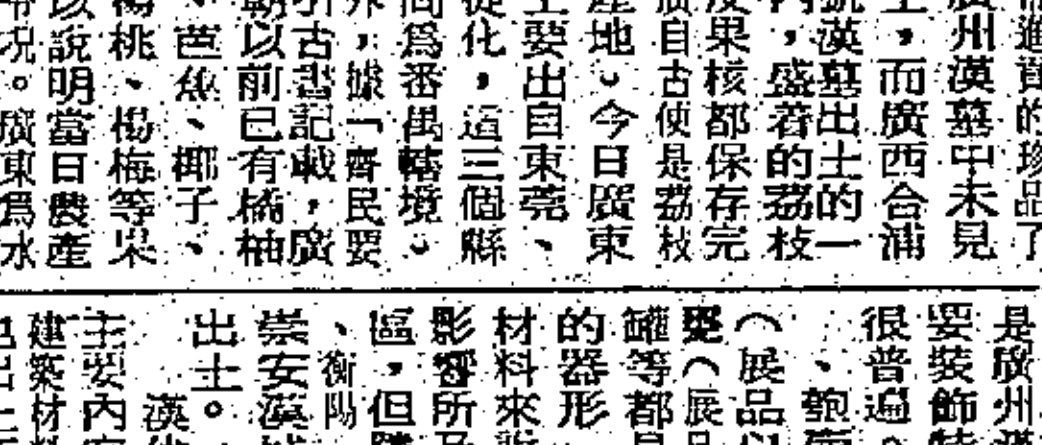 進貢的珍品了
廣州漢墓中未見
，而廣西合浦
號漢墓出土的一
內，盛着的荔枝
果核都保存完
廣自古使是荔枝
產地。今日廣東
主要出自東莞、
從化，這三個縣
同爲番禺轄境。
，據「齊民要
引古書記載，廣
朝以前已有橘柚
、芭蕉、椰子、
楊桃、楊梅等果
以說明當日農產
况。廣東爲水
是廣州
要裝飾
很普遍。
（展品以
（展品
罐等都
的器形
材料來說
影響所
區，但
、衡陽
崇安漢城
出土。
漢代
主要內容
建築材料
出土